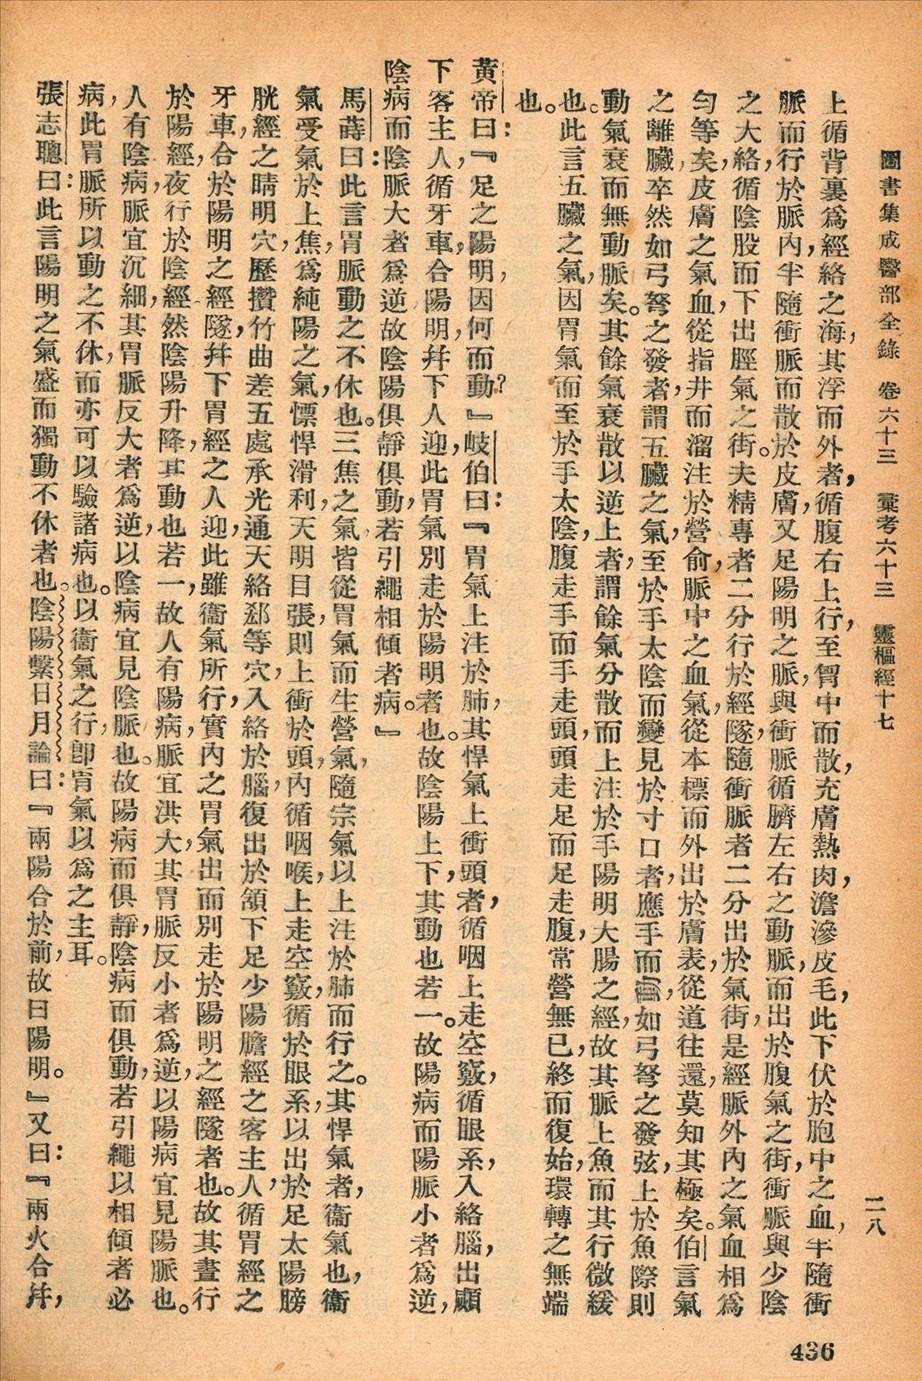 圖書集成醫部全錄 卷六十三 彙考六十三 靈樞經十七
二八
上循背裏爲經絡之海,其浮而外者,循腹右上行,至胷中而散,充膚熱肉,澹滲皮毛,此下伏於胞中之血,半隨衝
脈而行於脈內,半隨衝脈而散於皮膚,又足陽明之脈,與衝脈循臍左右之動脈,而出於腹氣之街,衝脈與少陰
之大絡,循陰股而下出脛氣之街。夫精專者二分行於經隧,隨衝脈者二分出於氣街,是經脈外內之氣血相爲
匀等矣,皮膚之氣血,從指井而溜注於營俞,脈中之血氣,從本標而外出於膚表,從道往還,莫知其極矣。伯言氣
之離臟,卒然如弓弩之發者,謂五臟之氣,至於手太陰而變見於寸口者,應手而,如弓弩之發弦,上於魚際,則
動氣衰而無動脈矣。其餘氣衰散以逆上者,謂餘氣分散而上注於手陽明大腸之經,故其脈上魚而其行微緩
也。此言五臟之氣,因胃氣而至於手太陰,腹走手而手走頭,頭走足而足走腹,常營無已,終而復始,環轉之無端
也。
黃帝曰:『足之陽明,因何而動?』岐伯曰:『胃氣上注於肺,其悍氣上衝頭者,循咽上走空竅,循眼系,入絡腦,出顑
下客主人,循牙車,合陽明,幷下人迎,此胃氣別走於陽明者也。故陰陽上下,其動也若一。故陽病而陽脈小者爲逆,
陰病而陰脈大者爲逆,故陰陽俱靜俱動,若引繩相傾者病。』
馬蒔曰:此言胃脈動之不休也。三焦之氣皆從胃氣而生,營氣隨宗氣以上注於肺而行之。其悍氣者,衞氣也,衞
氣受氣於上焦,爲純陽之氣,慓悍滑利,天明目張,則上衝於頭,內循咽喉,上走空竅,循於眼系,以出於足太陽膀
胱經之睛明穴,歷攢竹曲差五處承光通天絡郄等穴,入絡於腦,復出於頷下足少陽膽經之客主人,循胃經之
牙車,合於陽明之經隧,幷下胃經之人迎,此雖衞氣所行,實內之胃氣出而別走於陽明之經隧者也。故其晝行
於陽經,夜行於陰經,然陰陽升降,其動也若一,故人有陽病,脈宜洪大,其胃脈反小者爲逆,以陽病宜見陽脈也。
人有陰病,脈宜沉細,其胃脈反大者爲逆,以陰病宜見陰脈也。故陽病而俱靜,陰病而俱動,若引繩以相傾者必
病,此胃脈所以動之不休,而亦可以驗諸病也。以衞氣之行,卽胃氣以爲之主耳。
張志聰曰:此言陽明之氣盛而獨動不休者也。陰陽繫日月論曰:『兩陽合於前,故曰陽明。』又曰:『兩火合幷,
436